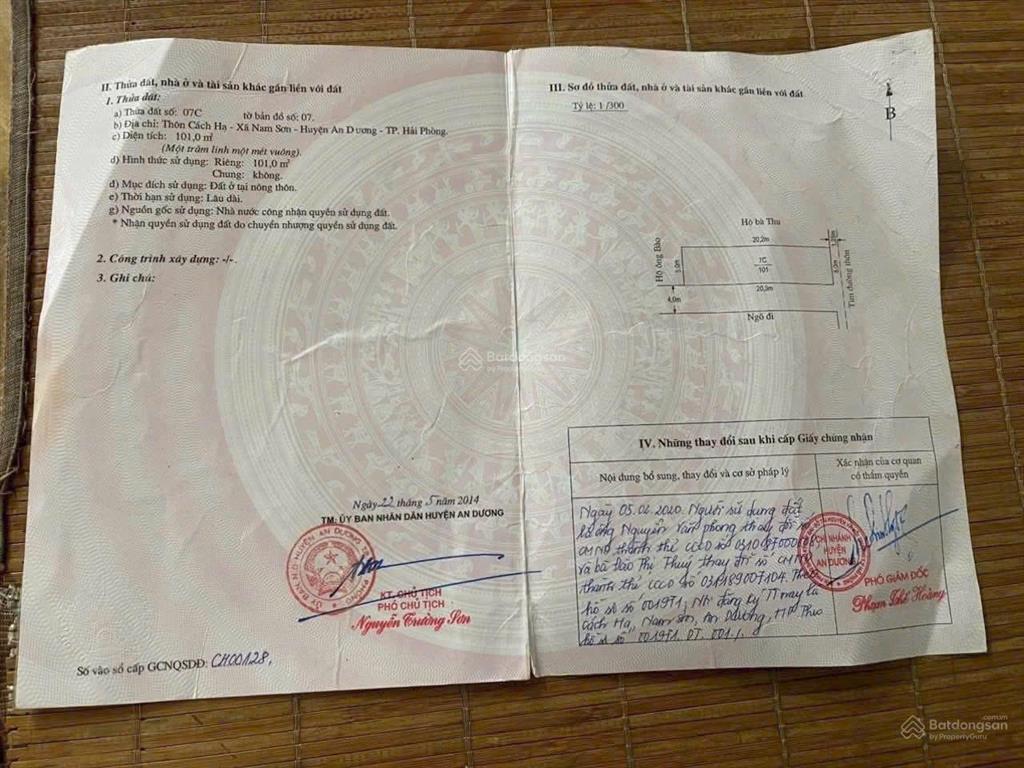 II. Thửa đất, nhà ở và tài sản khác gắn liền với đất
1. Thửa đất:
a) Thửa đất số: 07C tờ bản đồ số: 07.
b) Địa chỉ: Thôn Cách Hạ - Xã Nam Sơn - Huyện An Dương - TP. Hải Phòng.
c) Diện tích: 101,0 m²
(Một trăm linh một mét vuông).
d) Hình thức sử dụng: Riêng: 101,0 m²
Chung: không.
đ) Mục đích sử dụng: Đất ở tại nông thôn.
e) Thời hạn sử dụng: Lâu dài.
g) Nguồn gốc sử dụng: Nhà nước công nhận quyền sử dụng đất.
* Nhận quyền sử dụng đất do chuyển nhượng quyền sử dụng đất.
2. Công trình xây dựng: -/-.
3. Ghi chú:
Ngày 22 tháng 5 năm 2014
TM: ỦY BAN NHÂN DÂN HUYỆN AN DƯƠNG
KT. CHỦ TỊCH
PHÓ CHỦ TỊCH
Nguyễn Trường Sơn
Số vào sổ cấp GCNQSDĐ: CH00128.
III. Sơ đồ thửa đất, nhà ở và tài sản khác gắn liền với đất
Tỷ lệ: 1/300
B
Hộ bà Thu
20,2m
Hộ ông Bảo
5,0m
7C
101
5,0m
Tim đường thôn
20,2m
4,0m
Ngõ đi
IV. Những thay đổi sau khi cấp Giấy chứng nhận
Nội dung bổ sung, thay đổi và cơ sở pháp lý
Xác nhận của cơ quan
có thẩm quyền
Ngày 05.06.2020. Người sử dụng đất
là ông Nguyễn Văn Phong thay đổi số
CMND thành thẻ CCCD số
và bà Đào Thị Thuý thay đổi số CMND
thành thẻ CCCD số 031189007104. Theo
hồ sơ số 001971; Nơi đăng ký TT nay là
Cách Hạ, Nam Sơn, An Dương, HP Theo
hồ sơ số 001971. ĐT. 001.
CHI NHÁNH
HUYỆN
AN DƯƠNG
PHÓ GIÁM ĐỐC
Phạm Thế Hoàng
Batdongsan
by PropertyGuru
Batdongsan.com.vn
by PropertyGuru